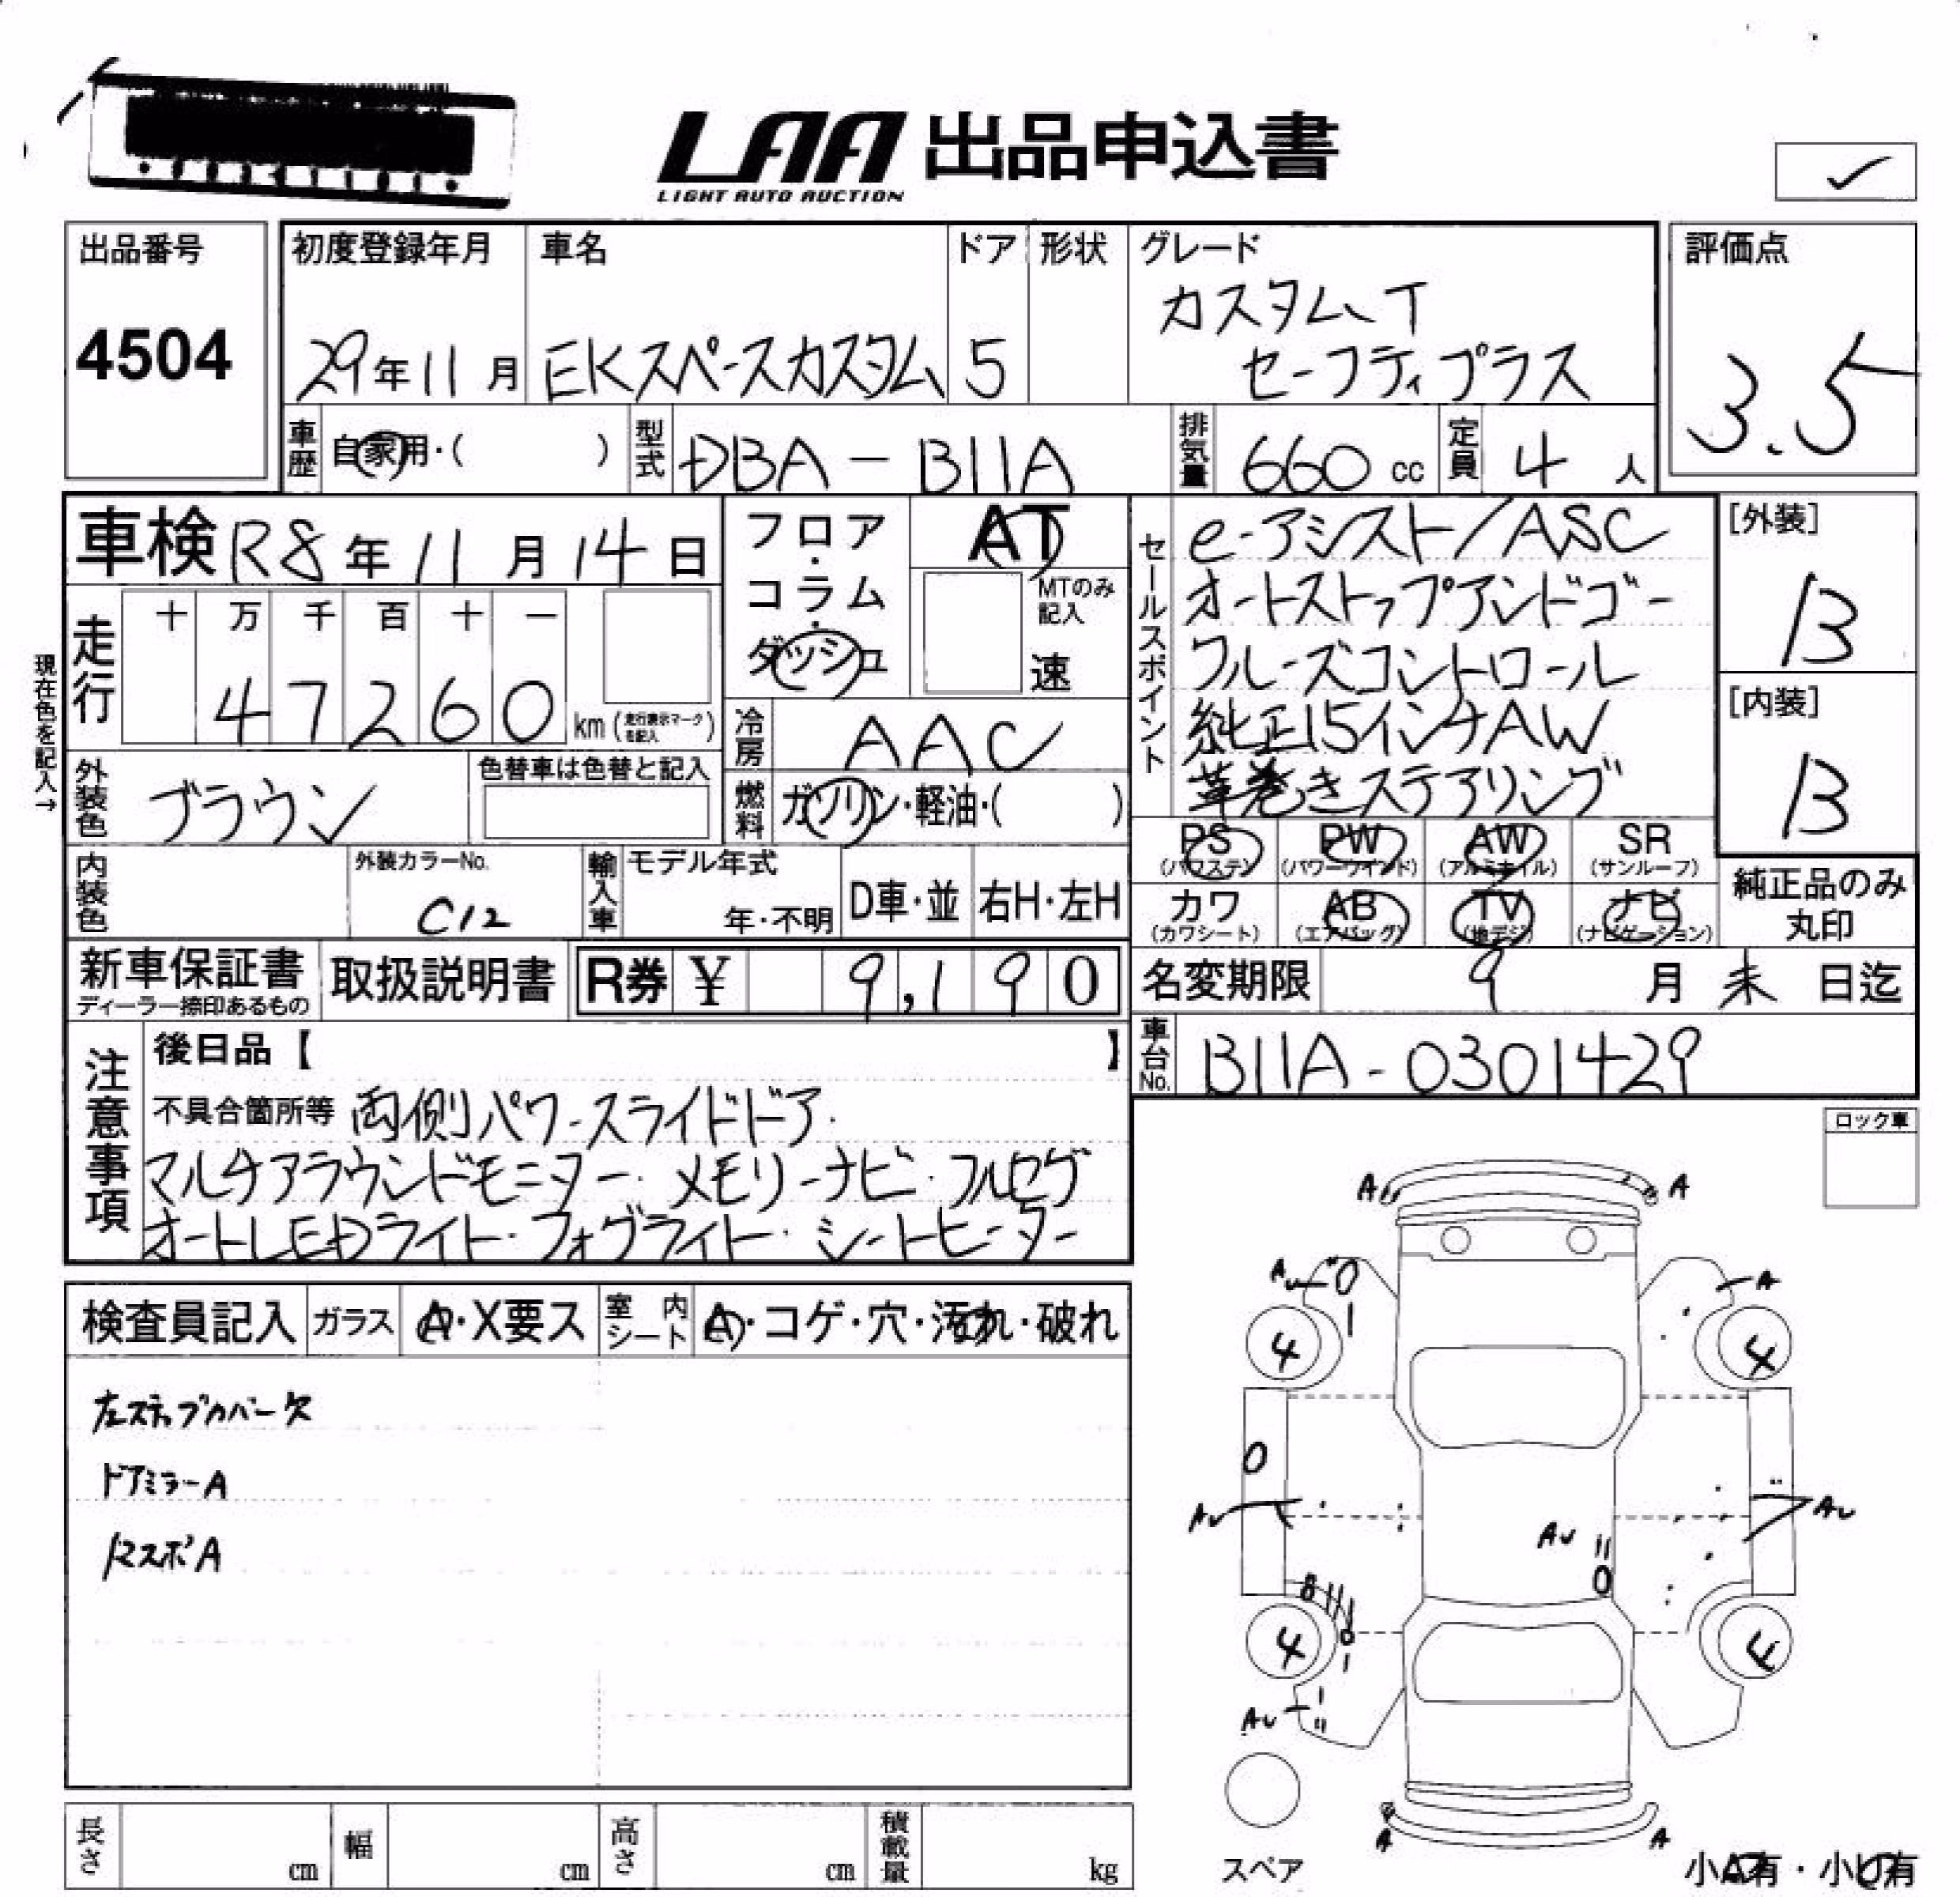 LAA 出品申込書
LIGHT AUTO AUCTION
✓
出品番号
4504
初度登録年月
29年11月
車名
EKスペースカスタム
ドア
5
形状
グレード
カスタム、T
セーフティプラス
評価点
3.5
車歴 自家用・( )
型式 DBA-B11A
排気量 660 cc
定員 4 人
車検 R8年11月14日
フロア・コラム・ダッシュ
AT
MTのみ記入
速
現在色を記入→
走行
十 万 千 百 十 一
47260
km(走行表示マークを記入)
冷房 AAC
外装色 ブラウン
色替車は色替と記入
燃料 ガソリン・軽油・( )
内装色
外装カラーNo.
C12
輸入車
モデル年式
年・不明
D車・並
右H・左H
セールスポイント
e-アシスト/ASC
オートストップアンドゴー
クルーズコントロール
純正15インチAW
革巻きステアリング
[外装]
B
[内装]
B
PS (パワステ)
PW (パワーウインド)
AW (アルミホイル)
SR (サンルーフ)
カワ (カワシート)
AB (エアバッグ)
TV (地デジ)
ナビ (ナビゲーション)
純正品のみ丸印
新車保証書
ディーラー捺印あるもの
取扱説明書
R券 ¥ 9,190
名変期限 9月末日迄
車台No. B11A-0301429
注意事項
後日品【 】
不具合箇所等 両側パワースライドドア・
マルチアラウンドモニター・メモリーナビ・フルセグ
オートLEDライト・フォグライト・シートヒーター
ロック車
検査員記入
ガラス
A・X要ス
室内シート
A・コゲ・穴・汚れ・破れ
左ステップカバー欠
ドアミラーA
リマスポA
A A
Au A
4 4
Au Au Au
B
4 4
Au
A A
スペア
小A有・小U有
長さ cm
幅 cm
高さ cm
積載量 kg